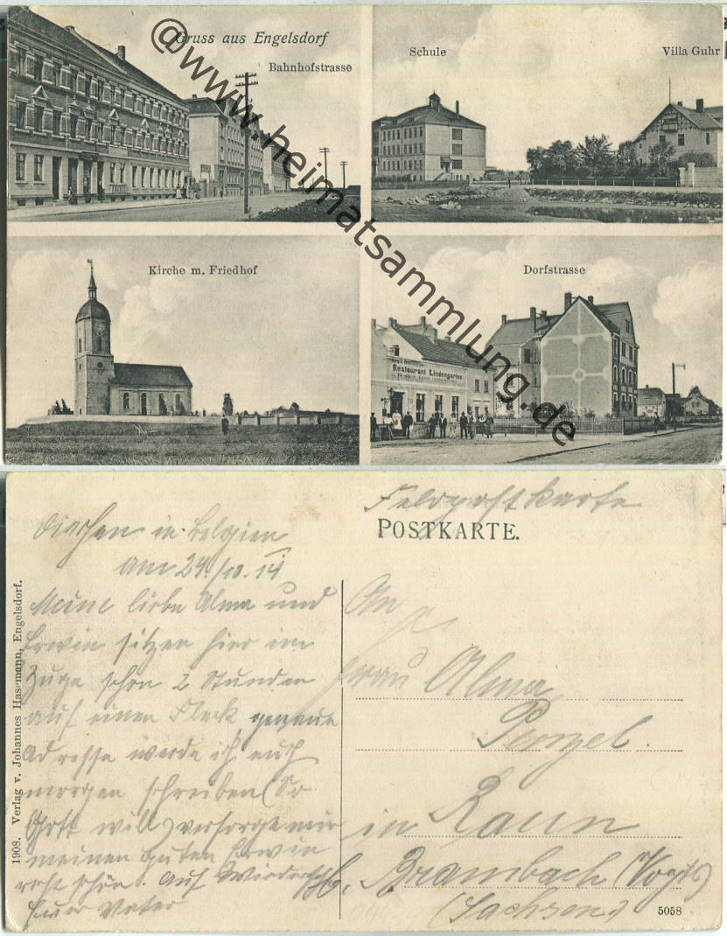 Gruss aus Engelsdorf
Bahnhofstrasse
Schule
Villa Guhr
Kirche m. Friedhof
Dorfstrasse
Restaurant Lindengarten
@www.heimatsammlung.de
Feldpostkarte
POSTKARTE.
in Belgien
am 24./10. 14
Meine liebe Alma und
Erwin sitzen hier im
Zuge schon 2 Stunden
auf einen Fleck genaue
Adresse werde ich euch
morgen schreiben (So
Gott will) versorge mir
meinen guten Erwin
recht schön. Auf Wiederseh
Euer Vater
An
Frau Alma
Penzel.
in Raun
b. Brambach (Vogtl)
(Sachsen)
1908. Verlag v. Johannes Hasemann, Engelsdorf.
5058